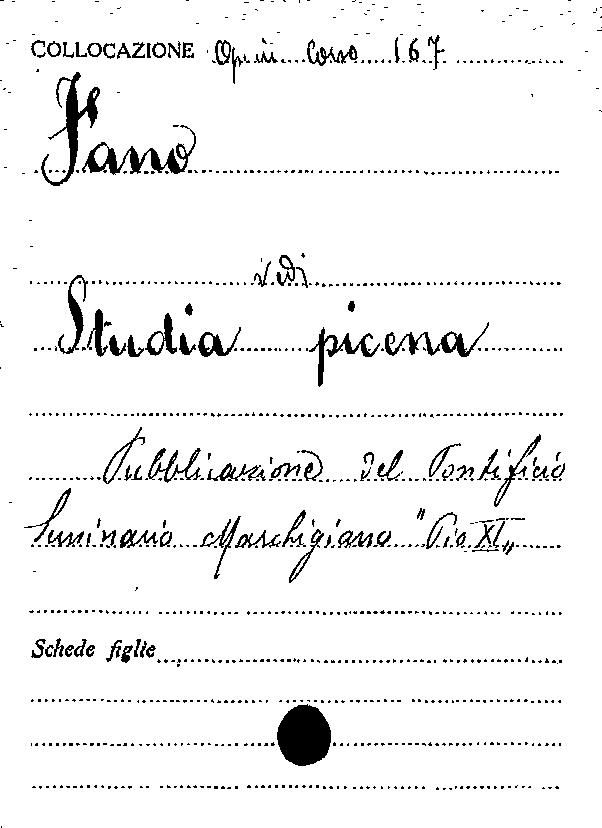 COLLOCAZIONE Op in Corso 167
Fano
vedi
Studia picena
Pubblicazione del Pontificio
Seminario Marchigiano "Pio XI„
Schede figlie